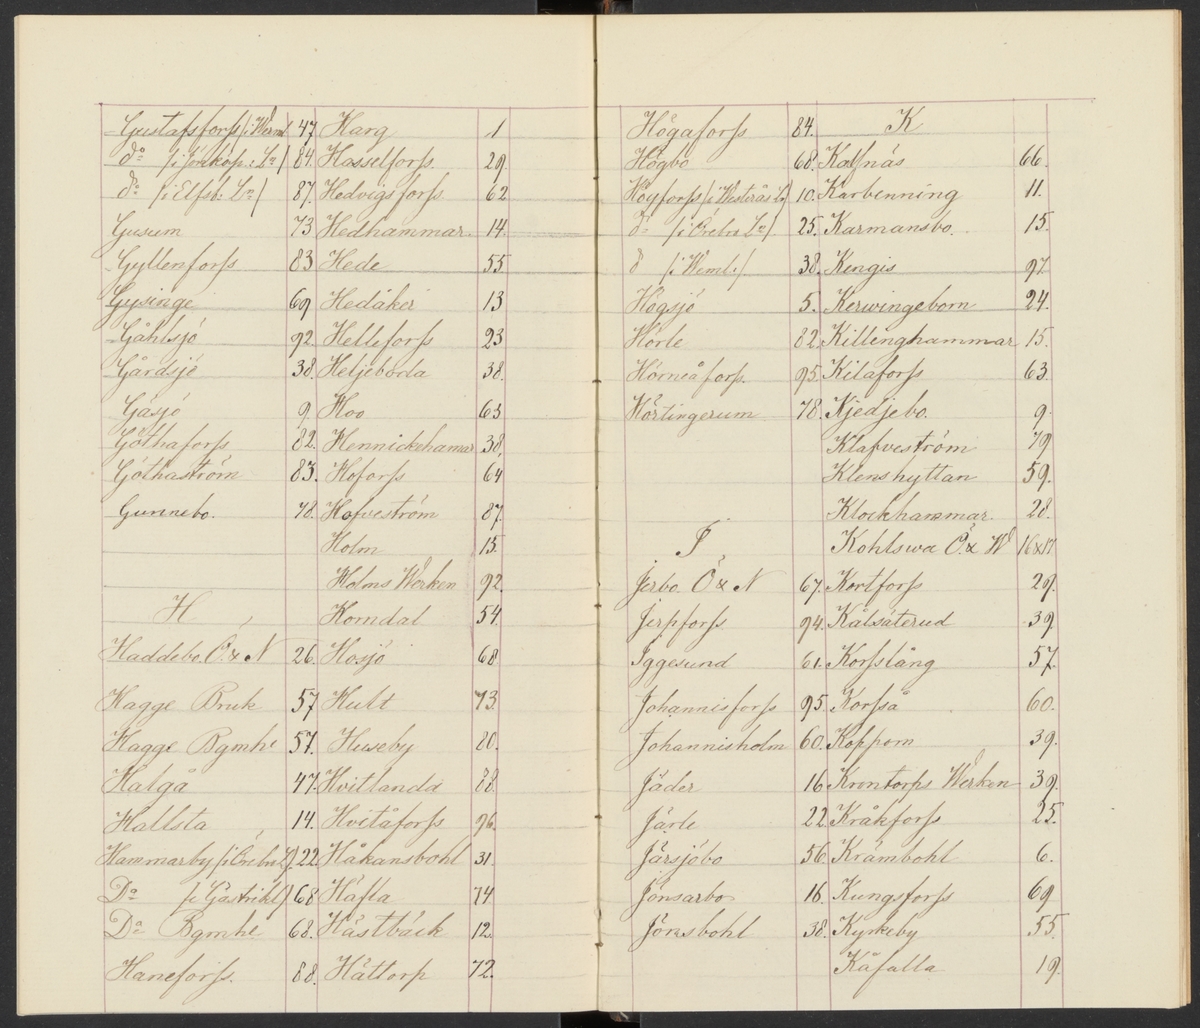 Gustafsforss /i Werml. 47
do /i Jönköp: Ln/ 84.
do /i Elfsb: Ln/ 87.
Gusum 73
Gyllenforss 83
Gysinge 69
Gåhlsjö 92.
Gårdsjö 38.
Gåsjö 9
Göthaforss 82.
Göthaström 83.
Gunnebo. 78.
H
Haddebo Ö. & N 26.
Hagge Bruk 57
Hagge Bgmhe 57.
Halgå 47.
Hallsta 14.
Hammarby /i Örebro L/ 22
Do /i Gästrikl/ 68
Do Bgmhe 68.
Haneforss. 88.
Harg 1
Hasselforss. 29.
Hedvigsforss 62
Hedhammar. 14.
Hede 55
Hedåker 13
Helleforss 23
Heljeboda 38.
Hoo 63
Hennickehamar 38.
Hoforss 64
Hofveström 87.
Holm 15.
Holms Werken 92.
Horndal 54.
Hosjö 68
Hult 73.
Huseby 80.
Hvitlanda 88.
Hvitåforss 96.
Håkansbohl 31.
Häfla 74
Hästbäck 12.
Hättorp 72.
Högaforss 84.
Högbo 68.
Högforss /i Westerås L/ 10.
do /i Örebro Ln/ 25.
d /i Weml:/ 38.
Högsjö 5.
Hörle 82.
Hörneåforss. 95.
Hörtingerum 78.
J
Jerbo. Ö & N 67.
Jerpforss 94.
Iggesund 61.
Johannisforss 95
Johannisholm 60.
Jäder 16
Järle 22
Järsjöbo 56.
Jönsarbo 16.
Jönsbohl 38.
K
Kalfnäs 66.
Karbenning 11.
Karmansbo. 15.
Kengis 97.
Kerwingeborn 24.
Killinghammar 15.
Kilaforss 63.
Kjedjebo. 9.
Klafveström 79
Klenshyttan 59.
Klockhammar. 28.
Kohlswa Ö. & W 16 & 17
Kortforss 29.
Kålsäterud 39.
Korsslång 57.
Korsså 60.
Koppom 39.
Krontorps Werken 39.
Kråkforss 25.
Krämbohl 6.
Kungsforss 69
Kyrkeby 55.
Kåfalla 19.